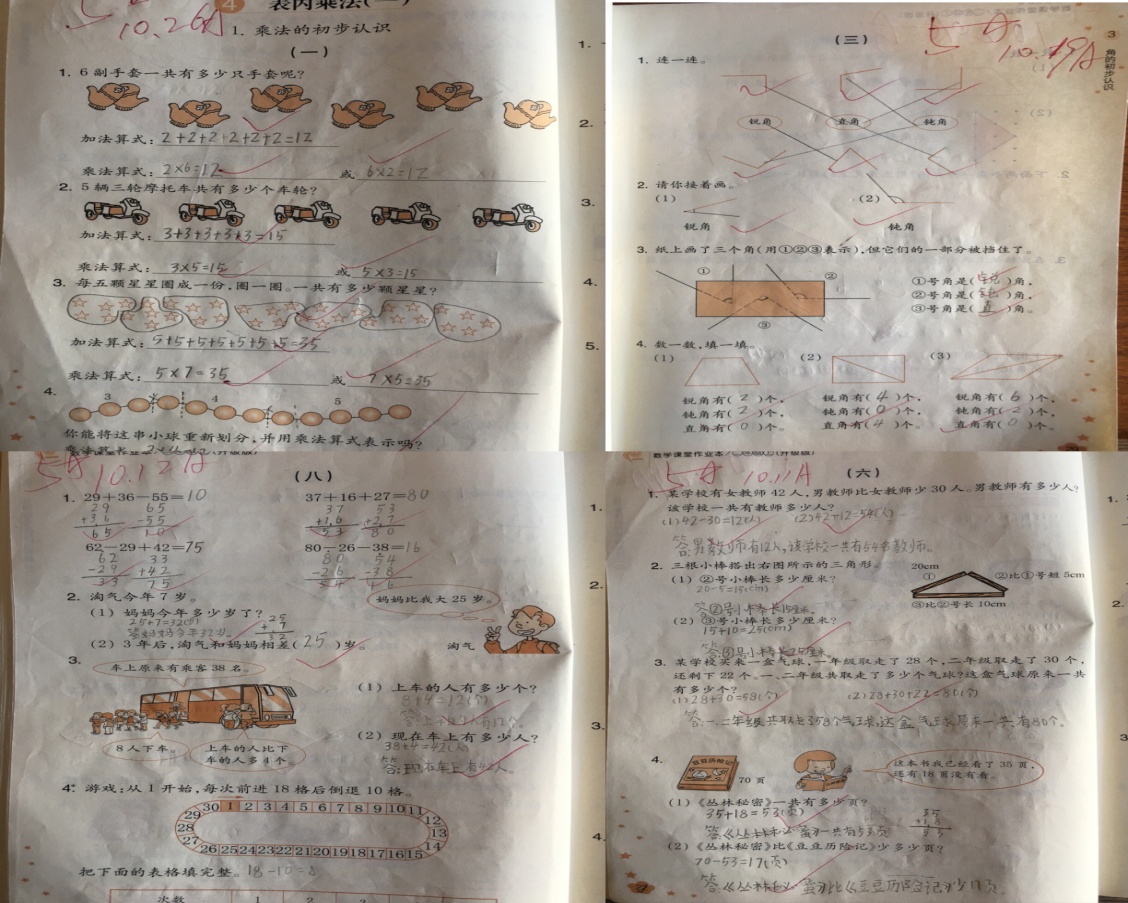 4 表内乘法(一)
10.26A
1. 乘法的初步认识
(一)
1. 6副手套一共有多少只手套呢?
加法算式: 2+2+2+2+2+2=12
乘法算式: 2×6=12 或 6×2=12
2. 5辆三轮摩托车共有多少个车轮?
加法算式: 3+3+3+3+3=15
乘法算式: 3×5=15 或 5×3=15
3. 每五颗星星圈成一份,圈一圈。一共有多少颗星星?
加法算式: 5+5+5+5+5+5+5=35
乘法算式: 5×7=35 或 7×5=35
4.
3 4 5
你能将这串小球重新划分,并用乘法算式表示吗?
(三)
10.19A
3
角的初步认识
1. 连一连。
锐角 直角 钝角
2. 请你接着画。
(1) (2)
锐角 钝角
3. 纸上画了三个角(用①②③表示),但它们的一部分被挡住了。
① ②
③
①号角是(锐)角,
②号角是(钝)角,
③号角是(直)角。
4. 数一数,填一填。
(1) (2) (3)
锐角有(2)个, 锐角有(4)个, 锐角有(6)个,
钝角有(2)个, 钝角有(0)个, 钝角有(2)个,
直角有(0)个。 直角有(4)个。 直角有(0)个。
10.12A
(八)
1. 29+36-55=10 37+16+27=80
29 65 37 53
+36 -55 +16 +27
65 10 53 80
62-29+42=75 80-26-38=16
62 33 80 54
-29 +42 -26 -38
33 75 54 16
2. 淘气今年7岁。
妈妈比我大25岁。
(1) 妈妈今年多少岁了?
25+7=32(岁)
答:妈妈今年32岁。
25
+7
32
(2) 3年后,淘气和妈妈相差(25)岁。
淘气
3.
车上原来有乘客38名。
8人下车。
上车的人比下
车的人多4个。
(1) 上车的人有多少个?
8+4=12(个)
答:上车的人有12个。
(2) 现在车上有多少人?
38+4=42(人)
答:现在车上有42人。
4. 游戏:从1开始,每次前进18格后倒退10格。
30 1 2 3 4 5 6 7 8 9 10 11
29 12
28 13
27 14
26 25 24 23 22 21 20 19 18 17 16 15
把下面的表格填完整。18-10=8
次数 1 2 3
10.11A
(六)
1. 某学校有女教师42人,男教师比女教师少30人。男教师有多少人?
该学校一共有教师多少人?
(1)42-30=12(人) (2)42+12=54(人)
答:男教师有12人,该学校一共有54名教师。
2. 三根小棒搭出右图所示的三角形。
20cm
① ②比①号短5cm
③比②号长10cm
(1) ②号小棒长多少厘米?
20-5=15(cm)
答:②号小棒长15厘米。
(2) ③号小棒长多少厘米?
15+10=25(cm)
答:③号小棒长25厘米。
3. 某学校买来一盒气球,一年级取走了28个,二年级取走了30个,
还剩下22个。一、二年级共取走了多少个气球?这盒气球原来一共
有多少个?
(1)28+30=58(个) (2)28+30+22=80(个)
答:一、二年级共取走了58个气球,这盒气球原来一共有80个。
4.
豆豆历险记
70页
这本书我已经看了35页,
还有18页没有看。
(1)《丛林秘密》一共有多少页?
35+18=53(页)
答:《丛林秘密》一共有53页
35
+18
53
(2)《丛林秘密》比《豆豆历险记》少多少页?
70-53=17(页)
答:《丛林秘密》比《豆豆历险记》少17页。